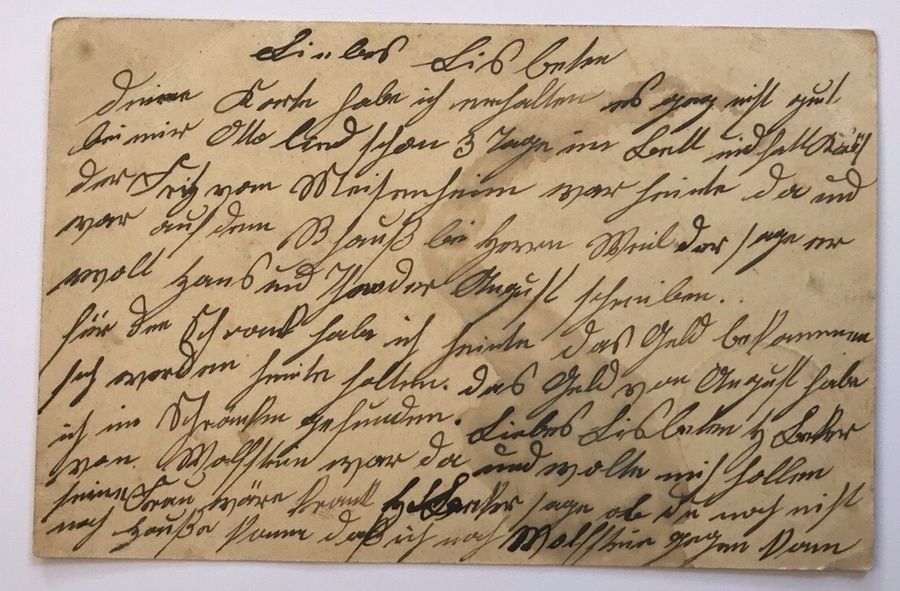 Liebes Lisbeten
deine Karte habe ich erhalten es geg nicht gut
bei mir Otto lied schon 3 Tage im Bett und hatt
der Fritz vom Meisenheim war heute da und
war auf dem Bhauß bei Herrn Weil der sage er
wolt Hans und Theodor August schreiben..
für den Schrank habe ich heute das Geld bekommen
sich werden heute hollen. das Geld von August habe
ich im Schränken gefunden. Liebes Lisbeten H Becker
von Wolfstein war da und wolte mich hollen
seine Frau wäre krank H Becker sage ob du noch nicht
nach Hauße kann daß ich nach Wolfstein gehen kann